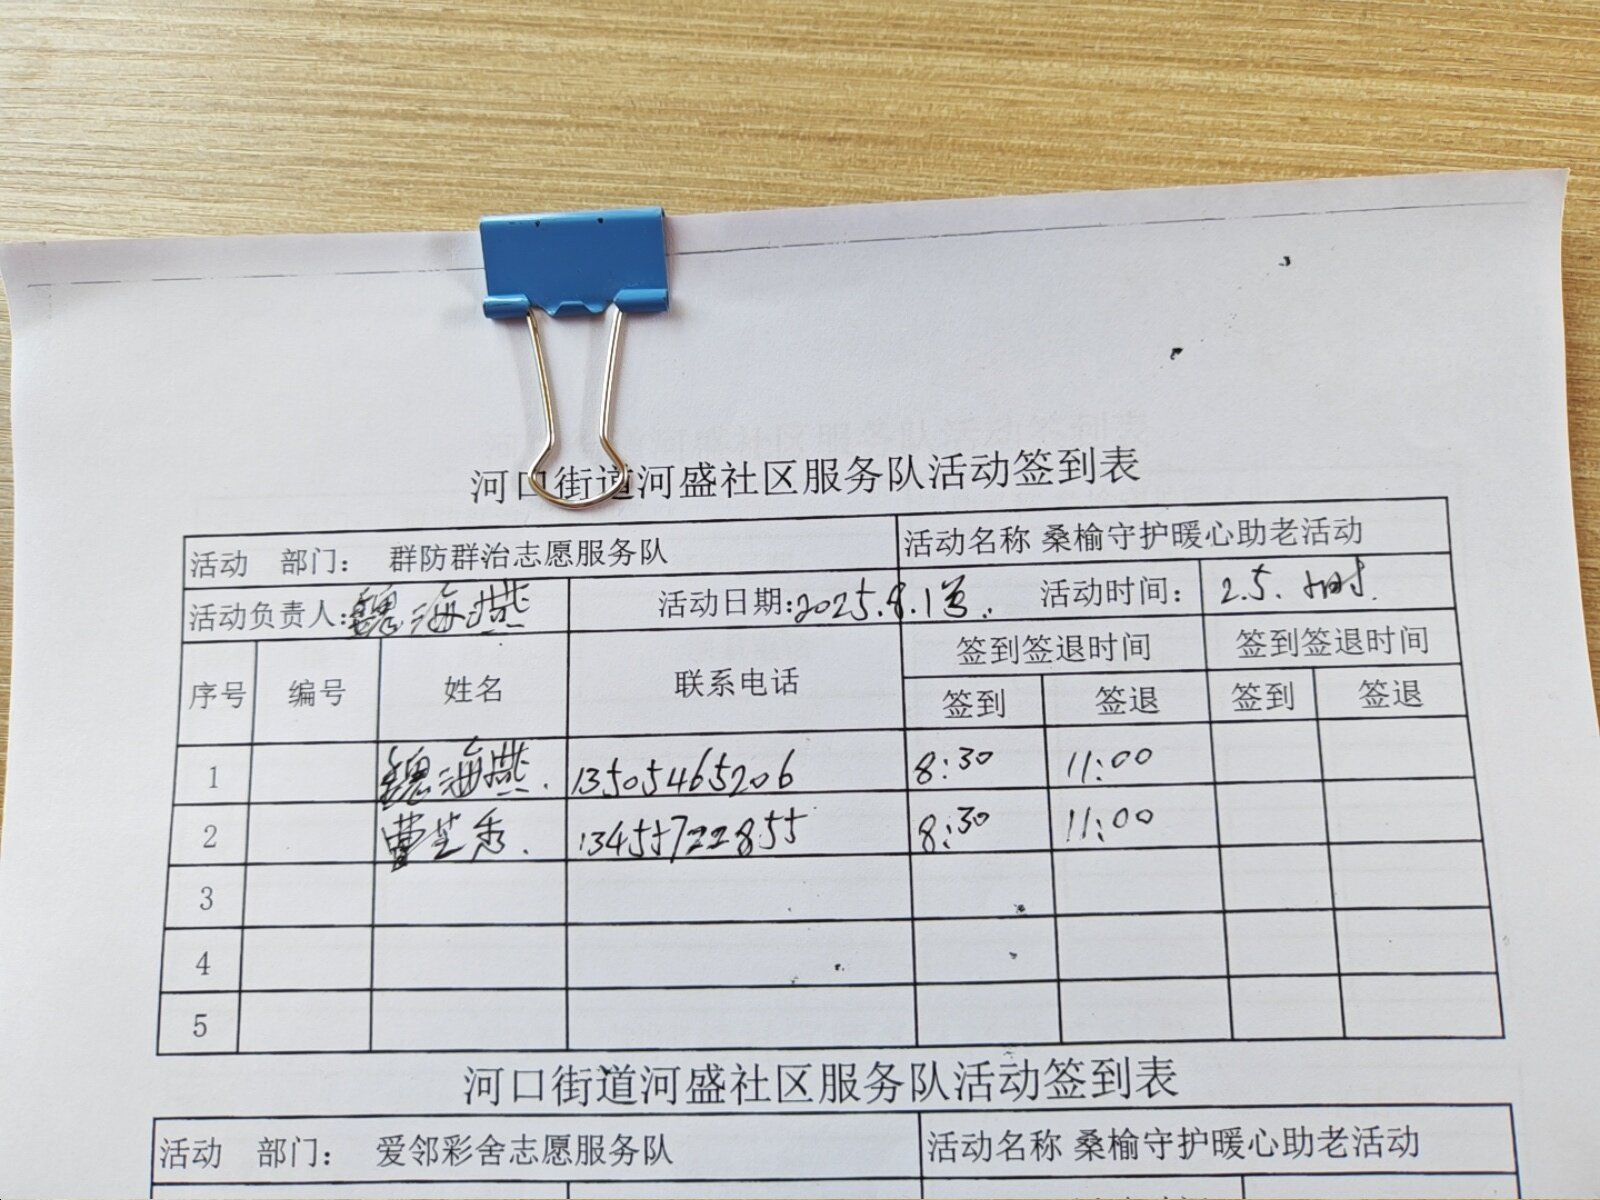 河口街道河盛社区服务队活动签到表
活动 部门： 群防群治志愿服务队 活动名称 桑榆守护暖心助老活动
活动负责人:魏海燕 活动日期:2025.8.1 活动时间： 2.5.小时.
序号 编号 姓名 联系电话 签到签退时间 签到签退时间
签到 签退 签到 签退
1 魏海燕. 13505465206 8:30 11:00
2 曹芝秀. 13455722855 8:30 11:00
3
4
5
河口街道河盛社区服务队活动签到表
活动 部门： 爱邻彩舍志愿服务队 活动名称 桑榆守护暖心助老活动